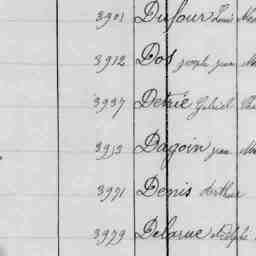 3901 Dufour Louis
3912 Dos joseph jean
3937 Detrié Gabriel
3953 Dagoin jean
3971 Denis Arthur
3979 Delarue Adolphe